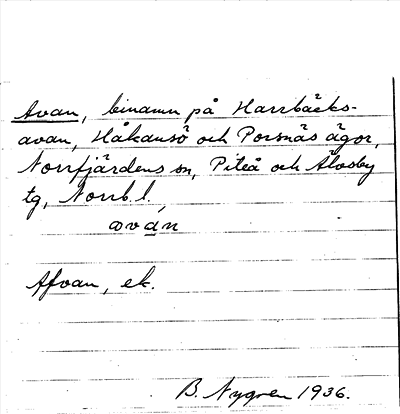 Avan, binamn på Harrbäcks-
avan, Håkansö och Porsnäs ägor,
Norrfjärdens sn, Piteå och Älvsby
tg, Norrb. l.
avan
Afvan, ek.
B. Nygren 1936.